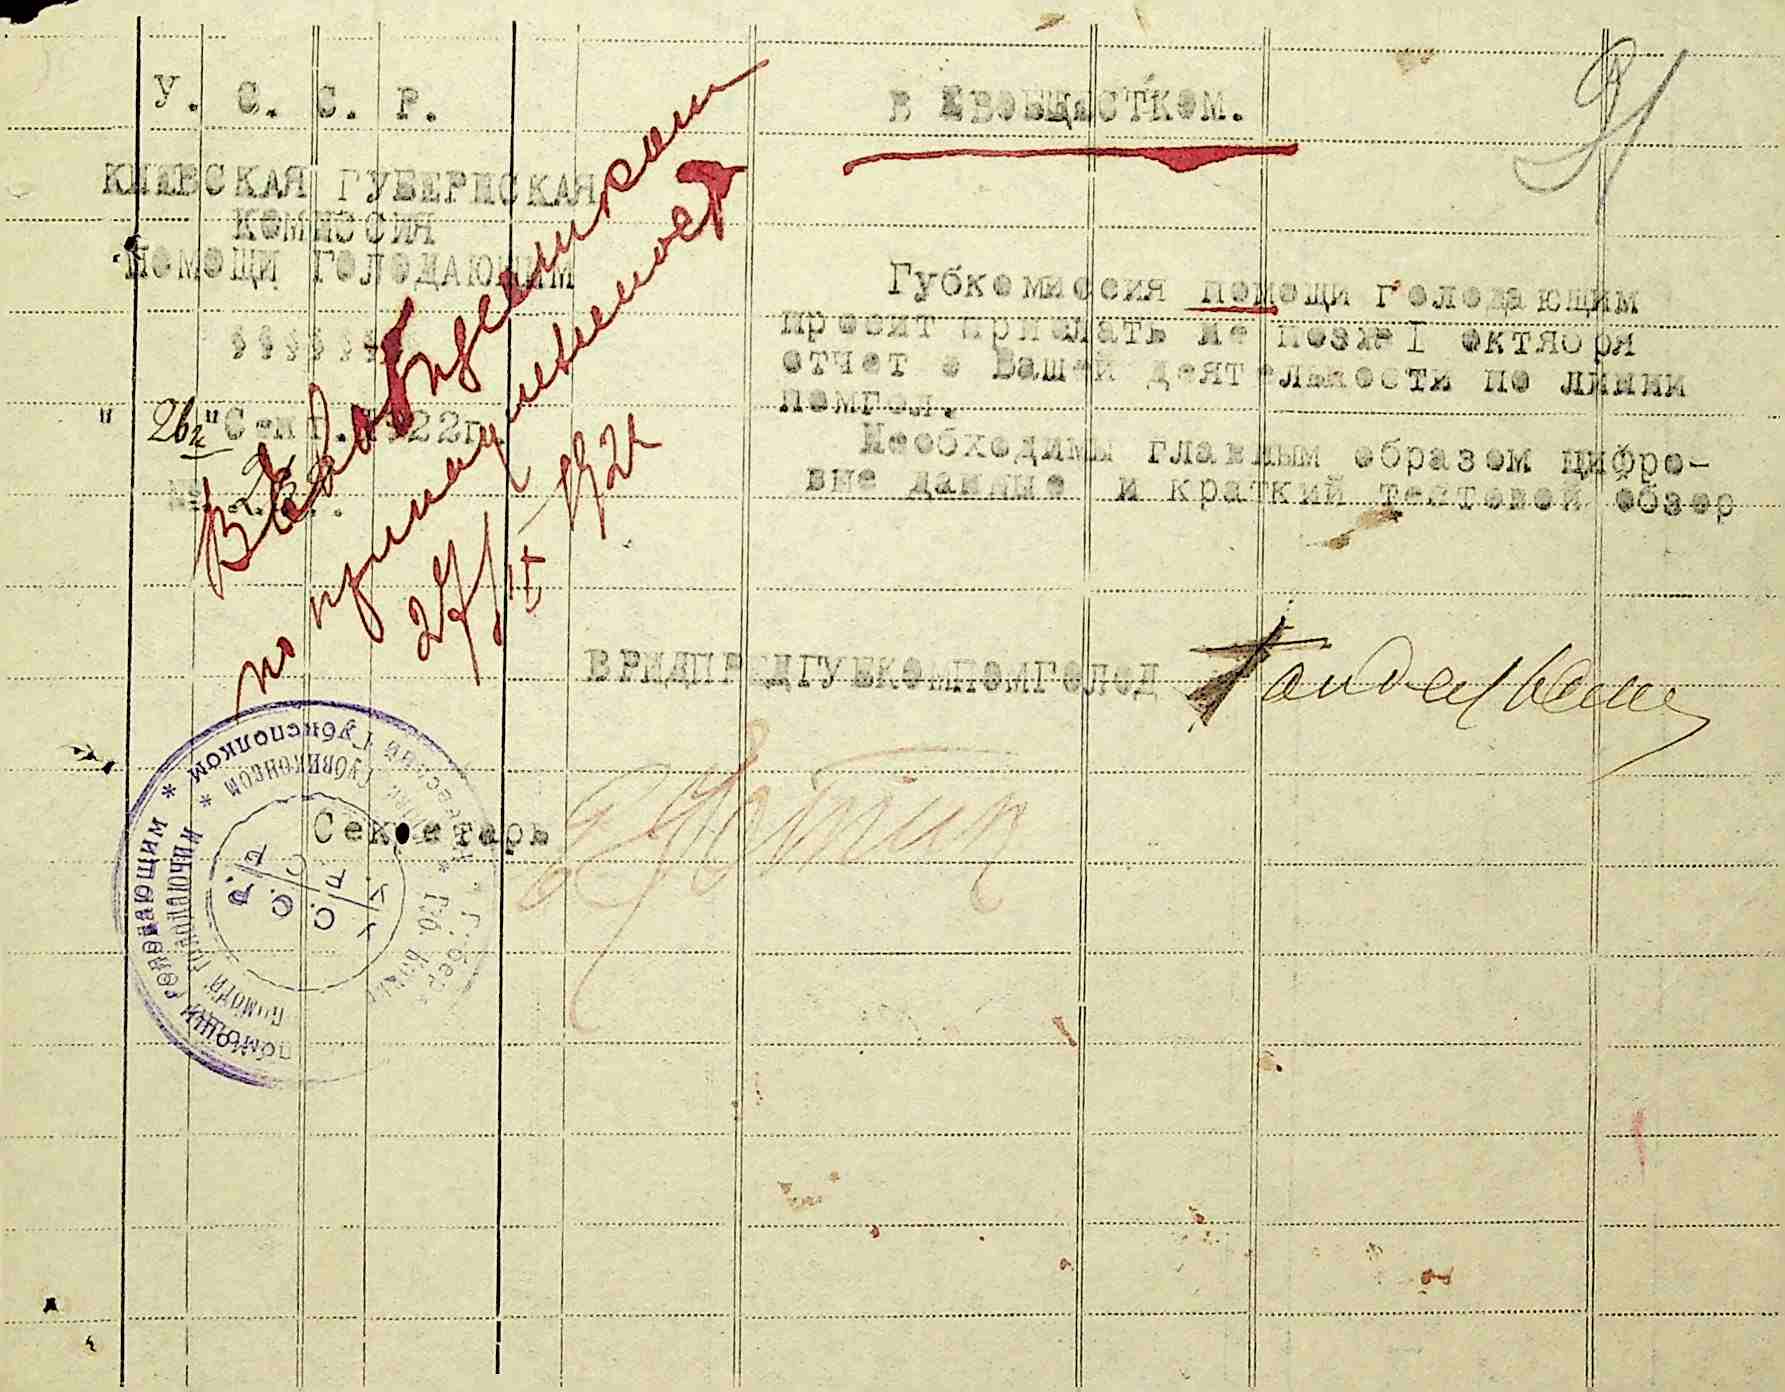 У. С. С. Р.
КИЕВСКАЯ ГУБЕРНСКАЯ
КОМИССИЯ
ПОМОЩИ ГОЛОДАЮЩИМ
"26" Сент. 1922г.
№
В ЕВОБЩЕСТКОМ.
91
Губкомиссия помощи голодающим
просит прислать не позже I октября
отчет о Вашей деятельности по линии
помгол.
Необходимы главным образом цифро-
вые данные и краткий текстовой обзор
по принадлежност
27/IX 1922
ВРИДПРЕДГУБКОМПОМГОЛОД
Секретарь
помощи голодающим * Губисполком *
голодаючим * Губвиконком
У. С. С. Р.